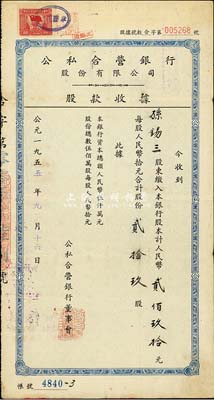 股款收據 合字第 005268 號
公私合營銀行
股份有限公司
股款收據
今收到
孫錫三 股東繳入本銀行股本計人民幣 貳佰玖拾 元
每股人民幣拾元合計股份 貳拾玖 股
此據
本銀行資本總額人民幣伍仟萬元
股份總數伍佰萬股每股人民幣拾元
公私合營銀行董事會
公元一九五五年九月十六日
帳號 4840-3